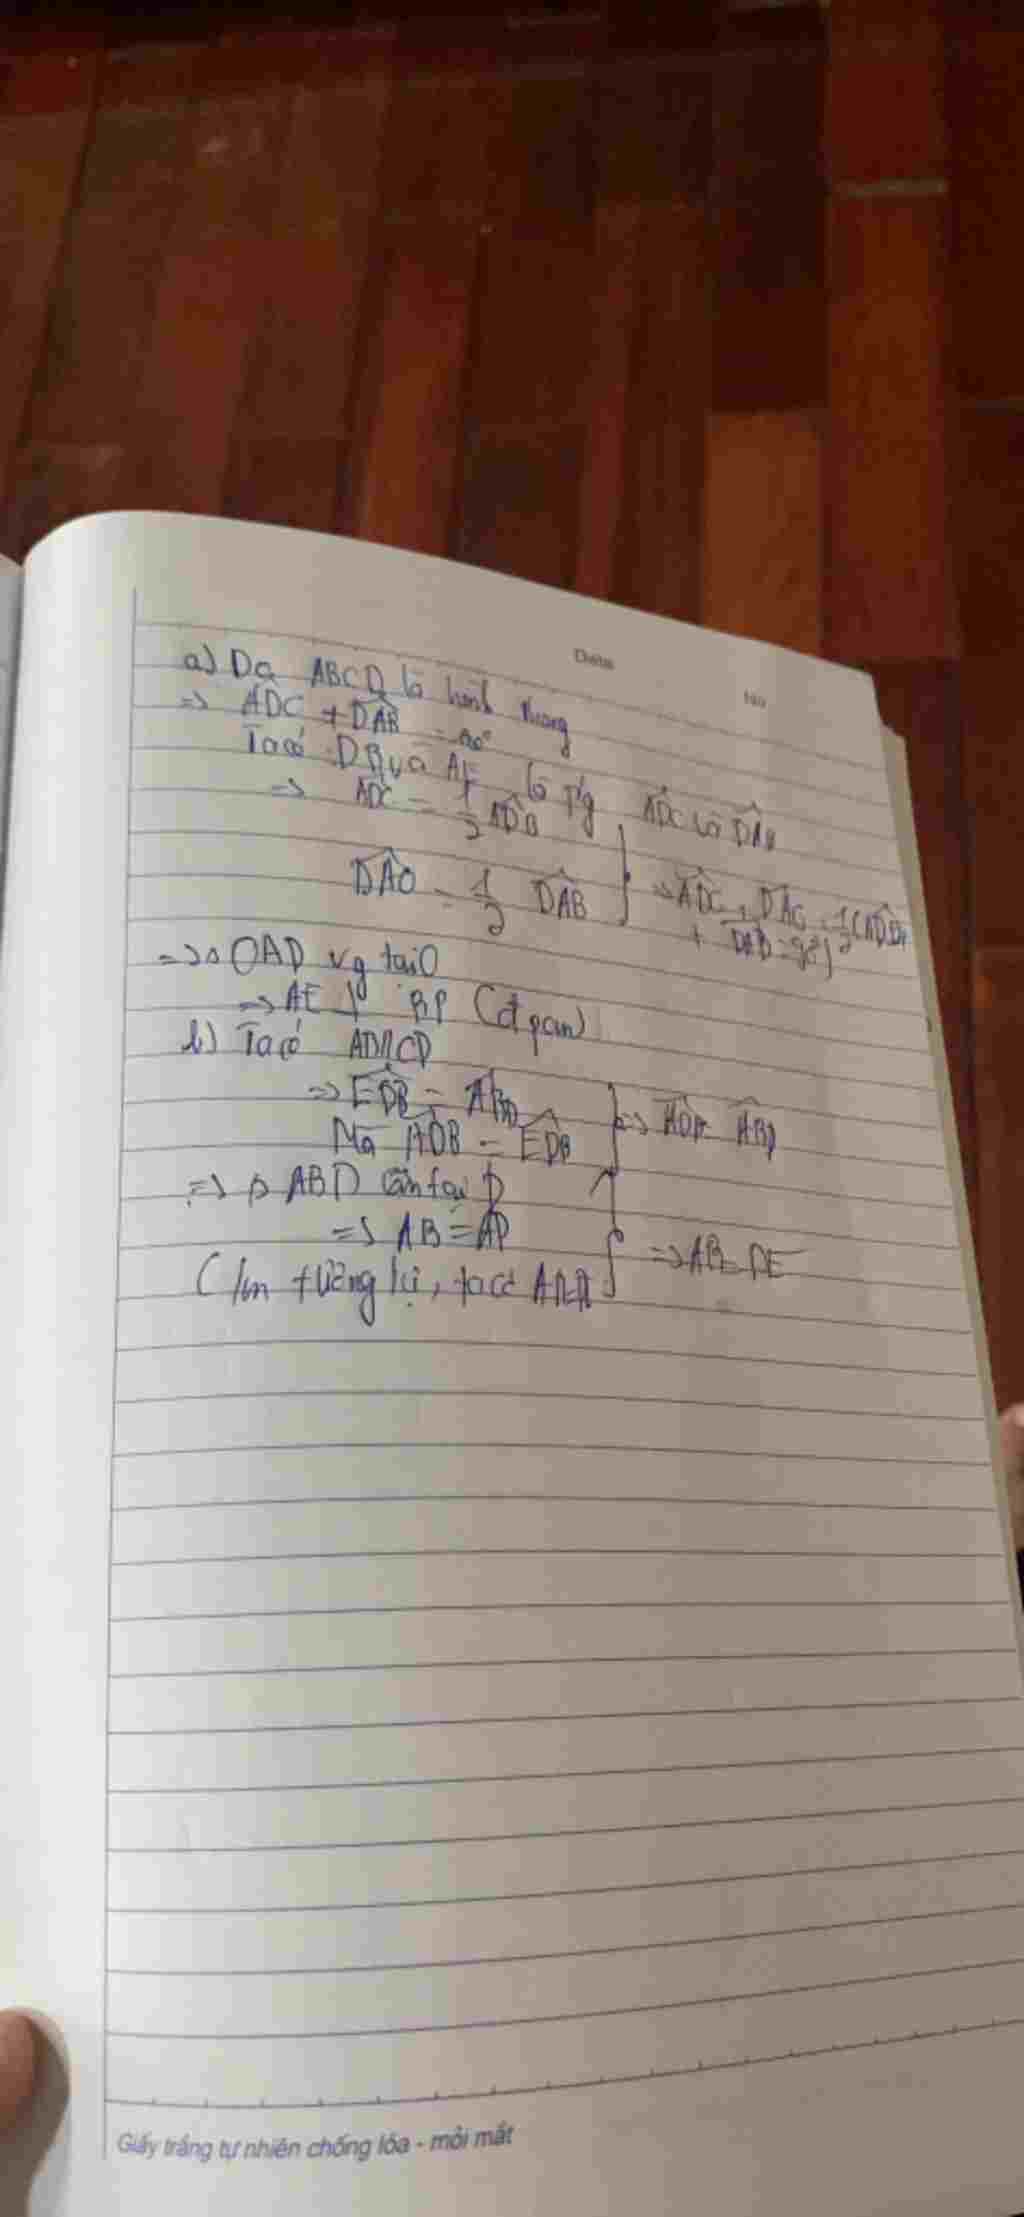 a) Da ABCD là hình thang
=> ADC + DAB = 180°
Ta có : DB và AE là p/g ADC và DAB
=> ADC = 1/2 ADB
DAO = 1/2 DAB } => ADC + DAO = 1/2 (
+ DAB = 90°)
=> △ OAD vg tại O
=> AE ⊥ BD (đpcm)
b) Ta có AB//CD
=> EDB = ABD
Mà ADB = EDB } => ADB = ABD
=> △ ABD cân tại
=> AB = AD
C/m tương tự, ta có } => AB = DE
Giấy trắng tự nhiên chống lóa - mỏi mắt